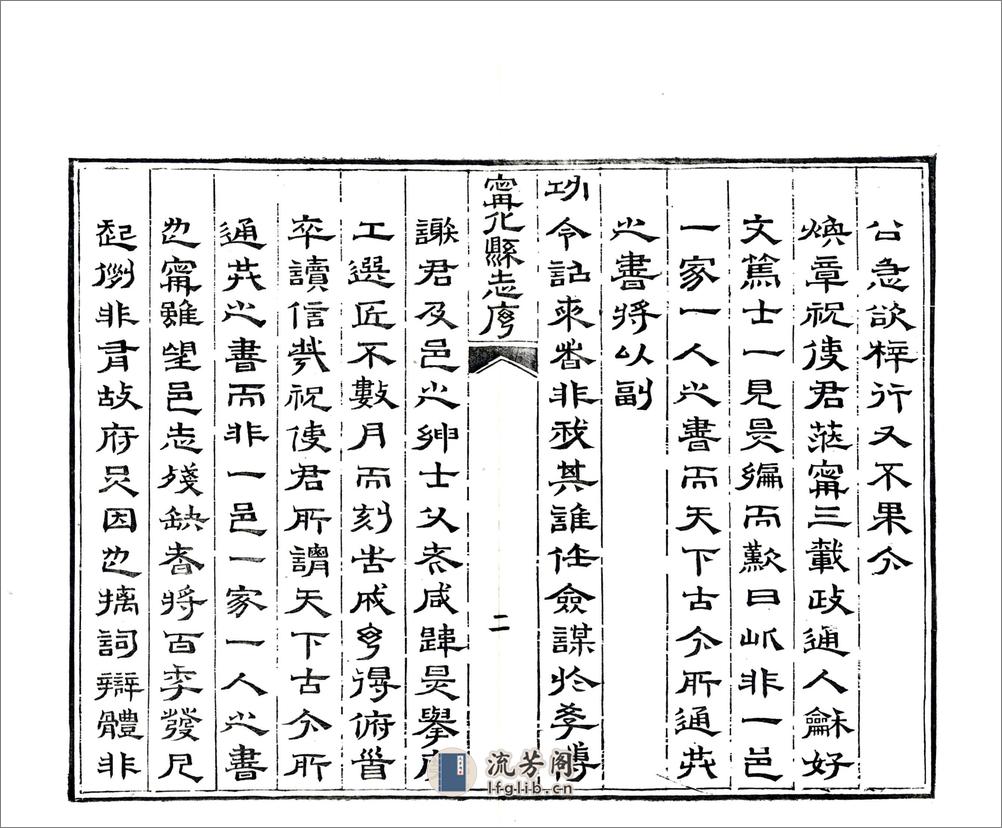 公急欲梓行又不果今
煥章祝使君蒞甯三載政通人龢好
文篤士一見是編而歎曰此非一邑
一家一人之書而天下古今所通共
之書將以副
功令詔來者非我其誰任僉謀於季
甯化縣志序
二
謝君及邑之紳士父老咸韙是舉
工選匠不數月而刻告成予得俯首
卒讀信哉祝使君所謂天下古今所
通共之書而非一邑一家一人之書
也甯雖望邑志殘缺者將百季發凡
起例非有故府足因也摛詞辯體非
流芳阁
lfglib.cn